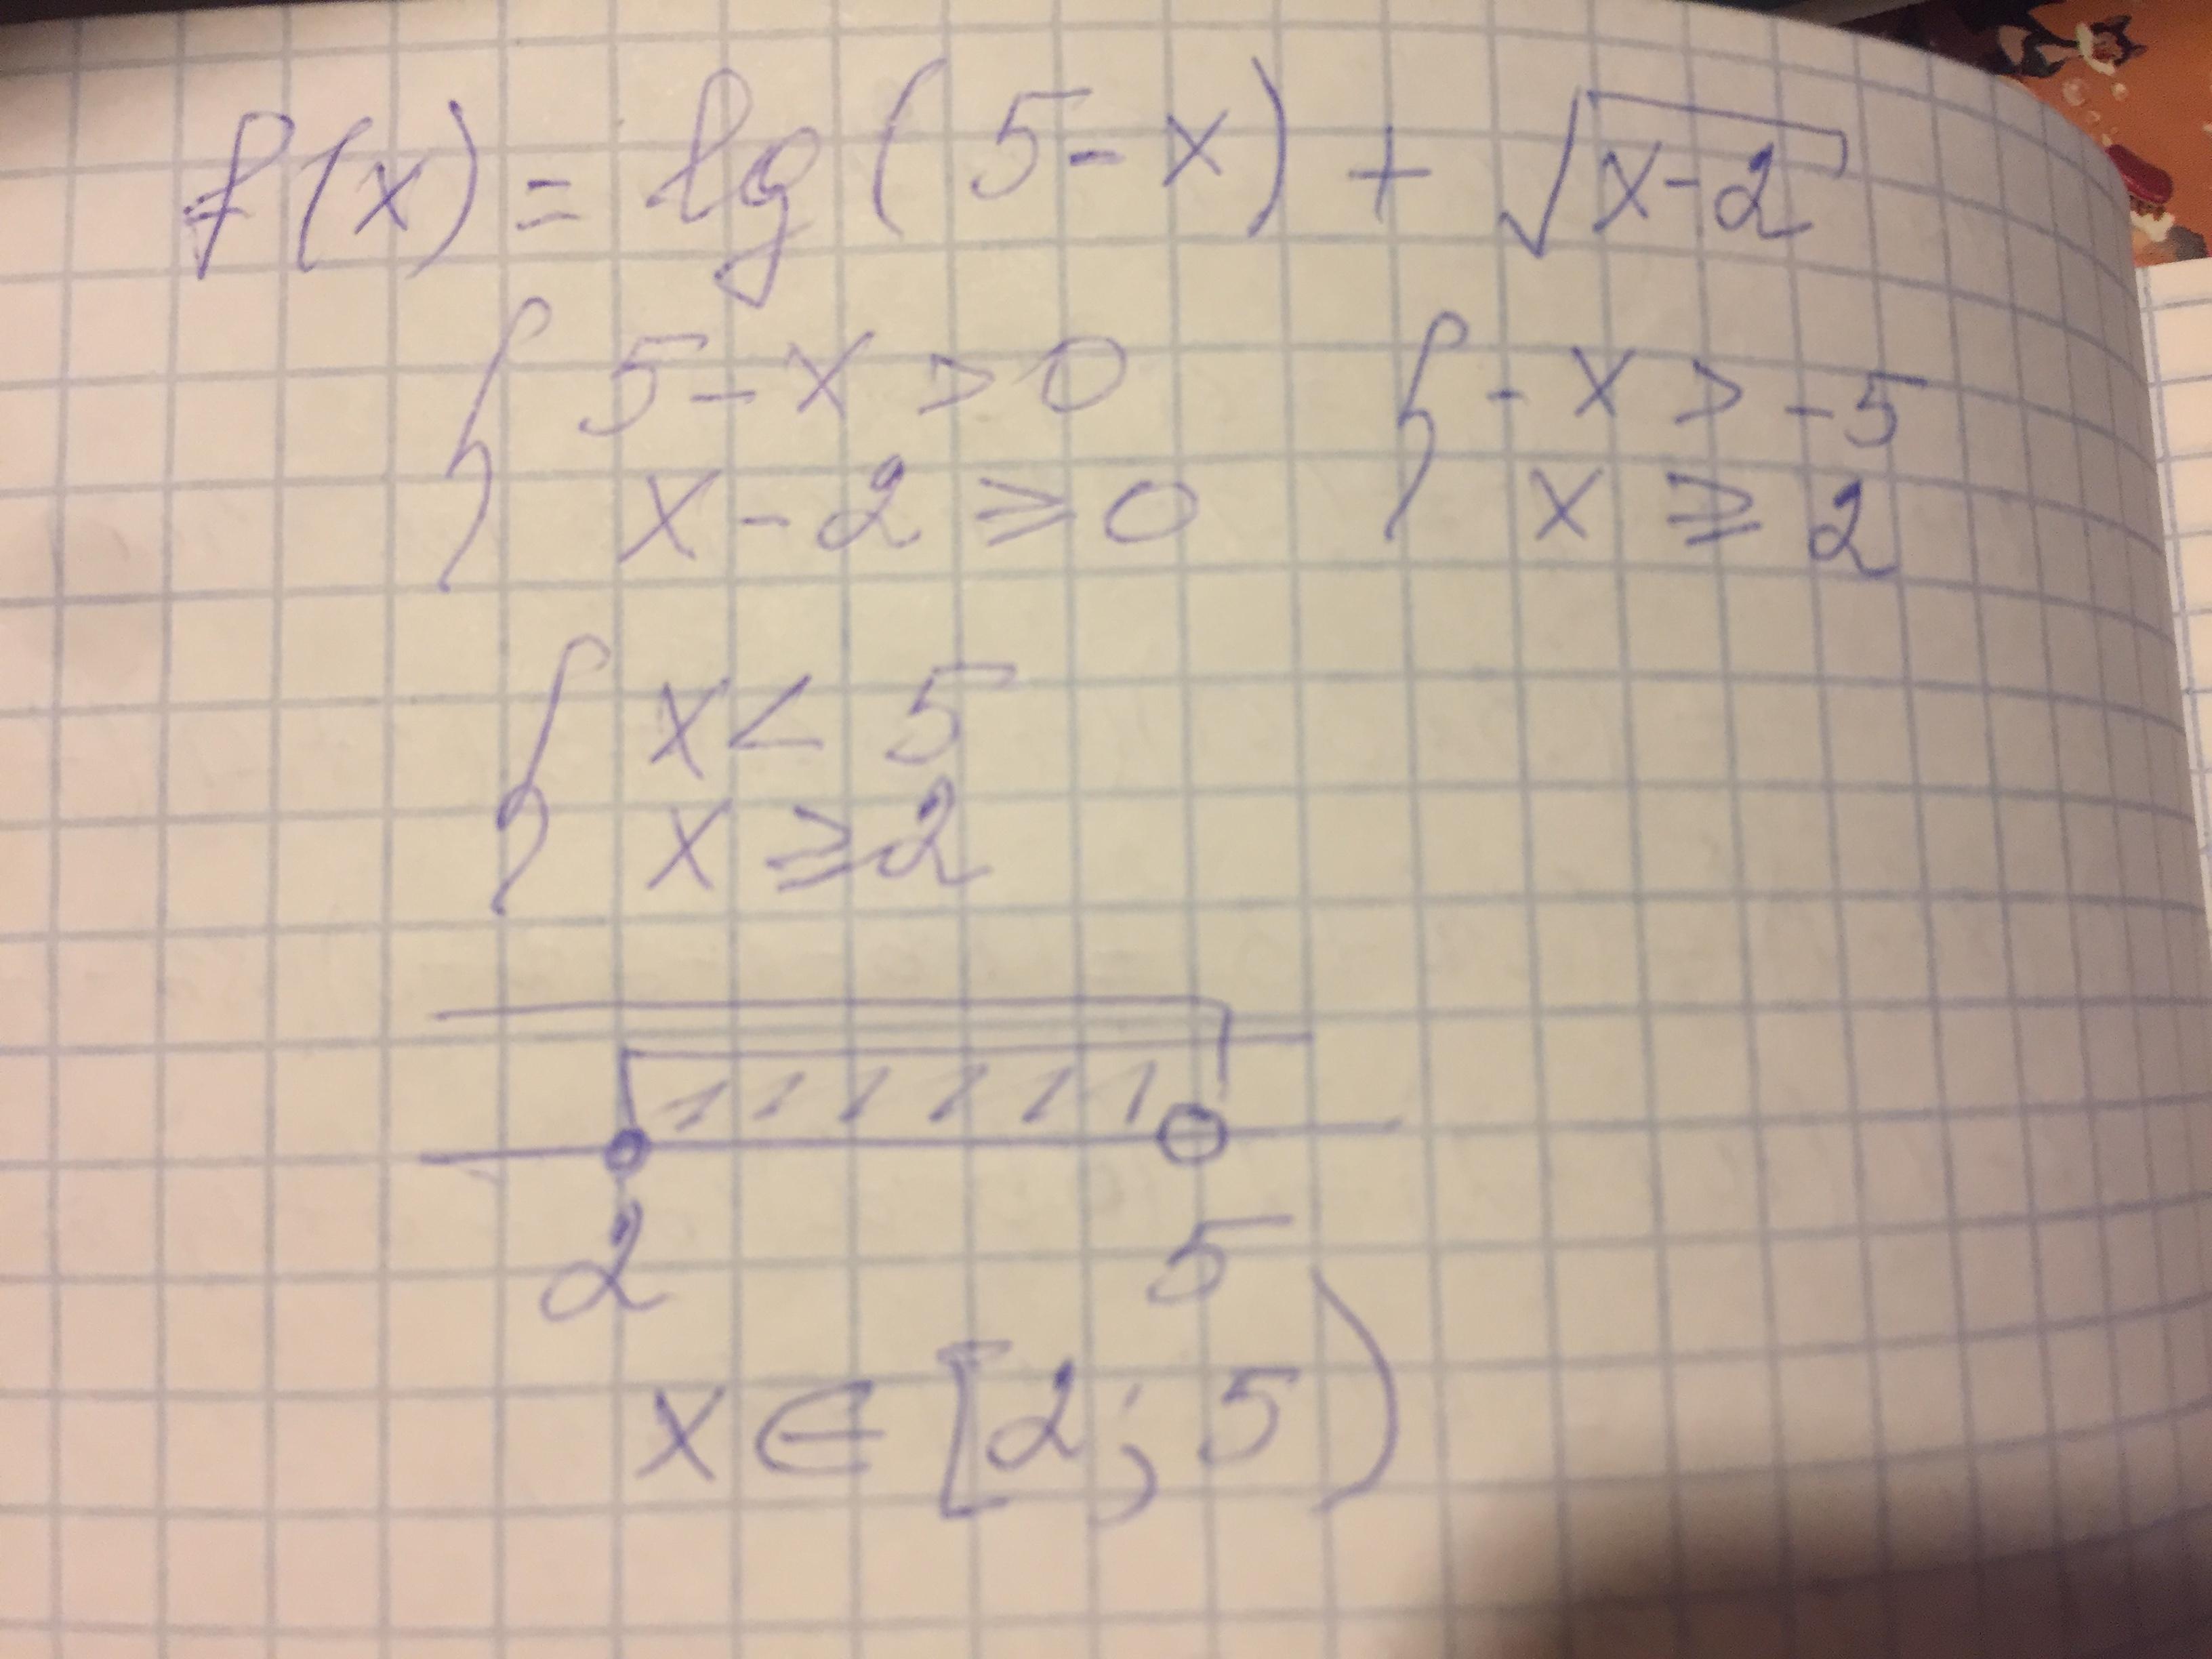 f(x) = lg(5-x) + √(x-2)
{ 5-x > 0 { -x > -5
x-2 ≥ 0 x ≥ 2
{ x < 5
x ≥ 2
2 5
x ∈ [2; 5)